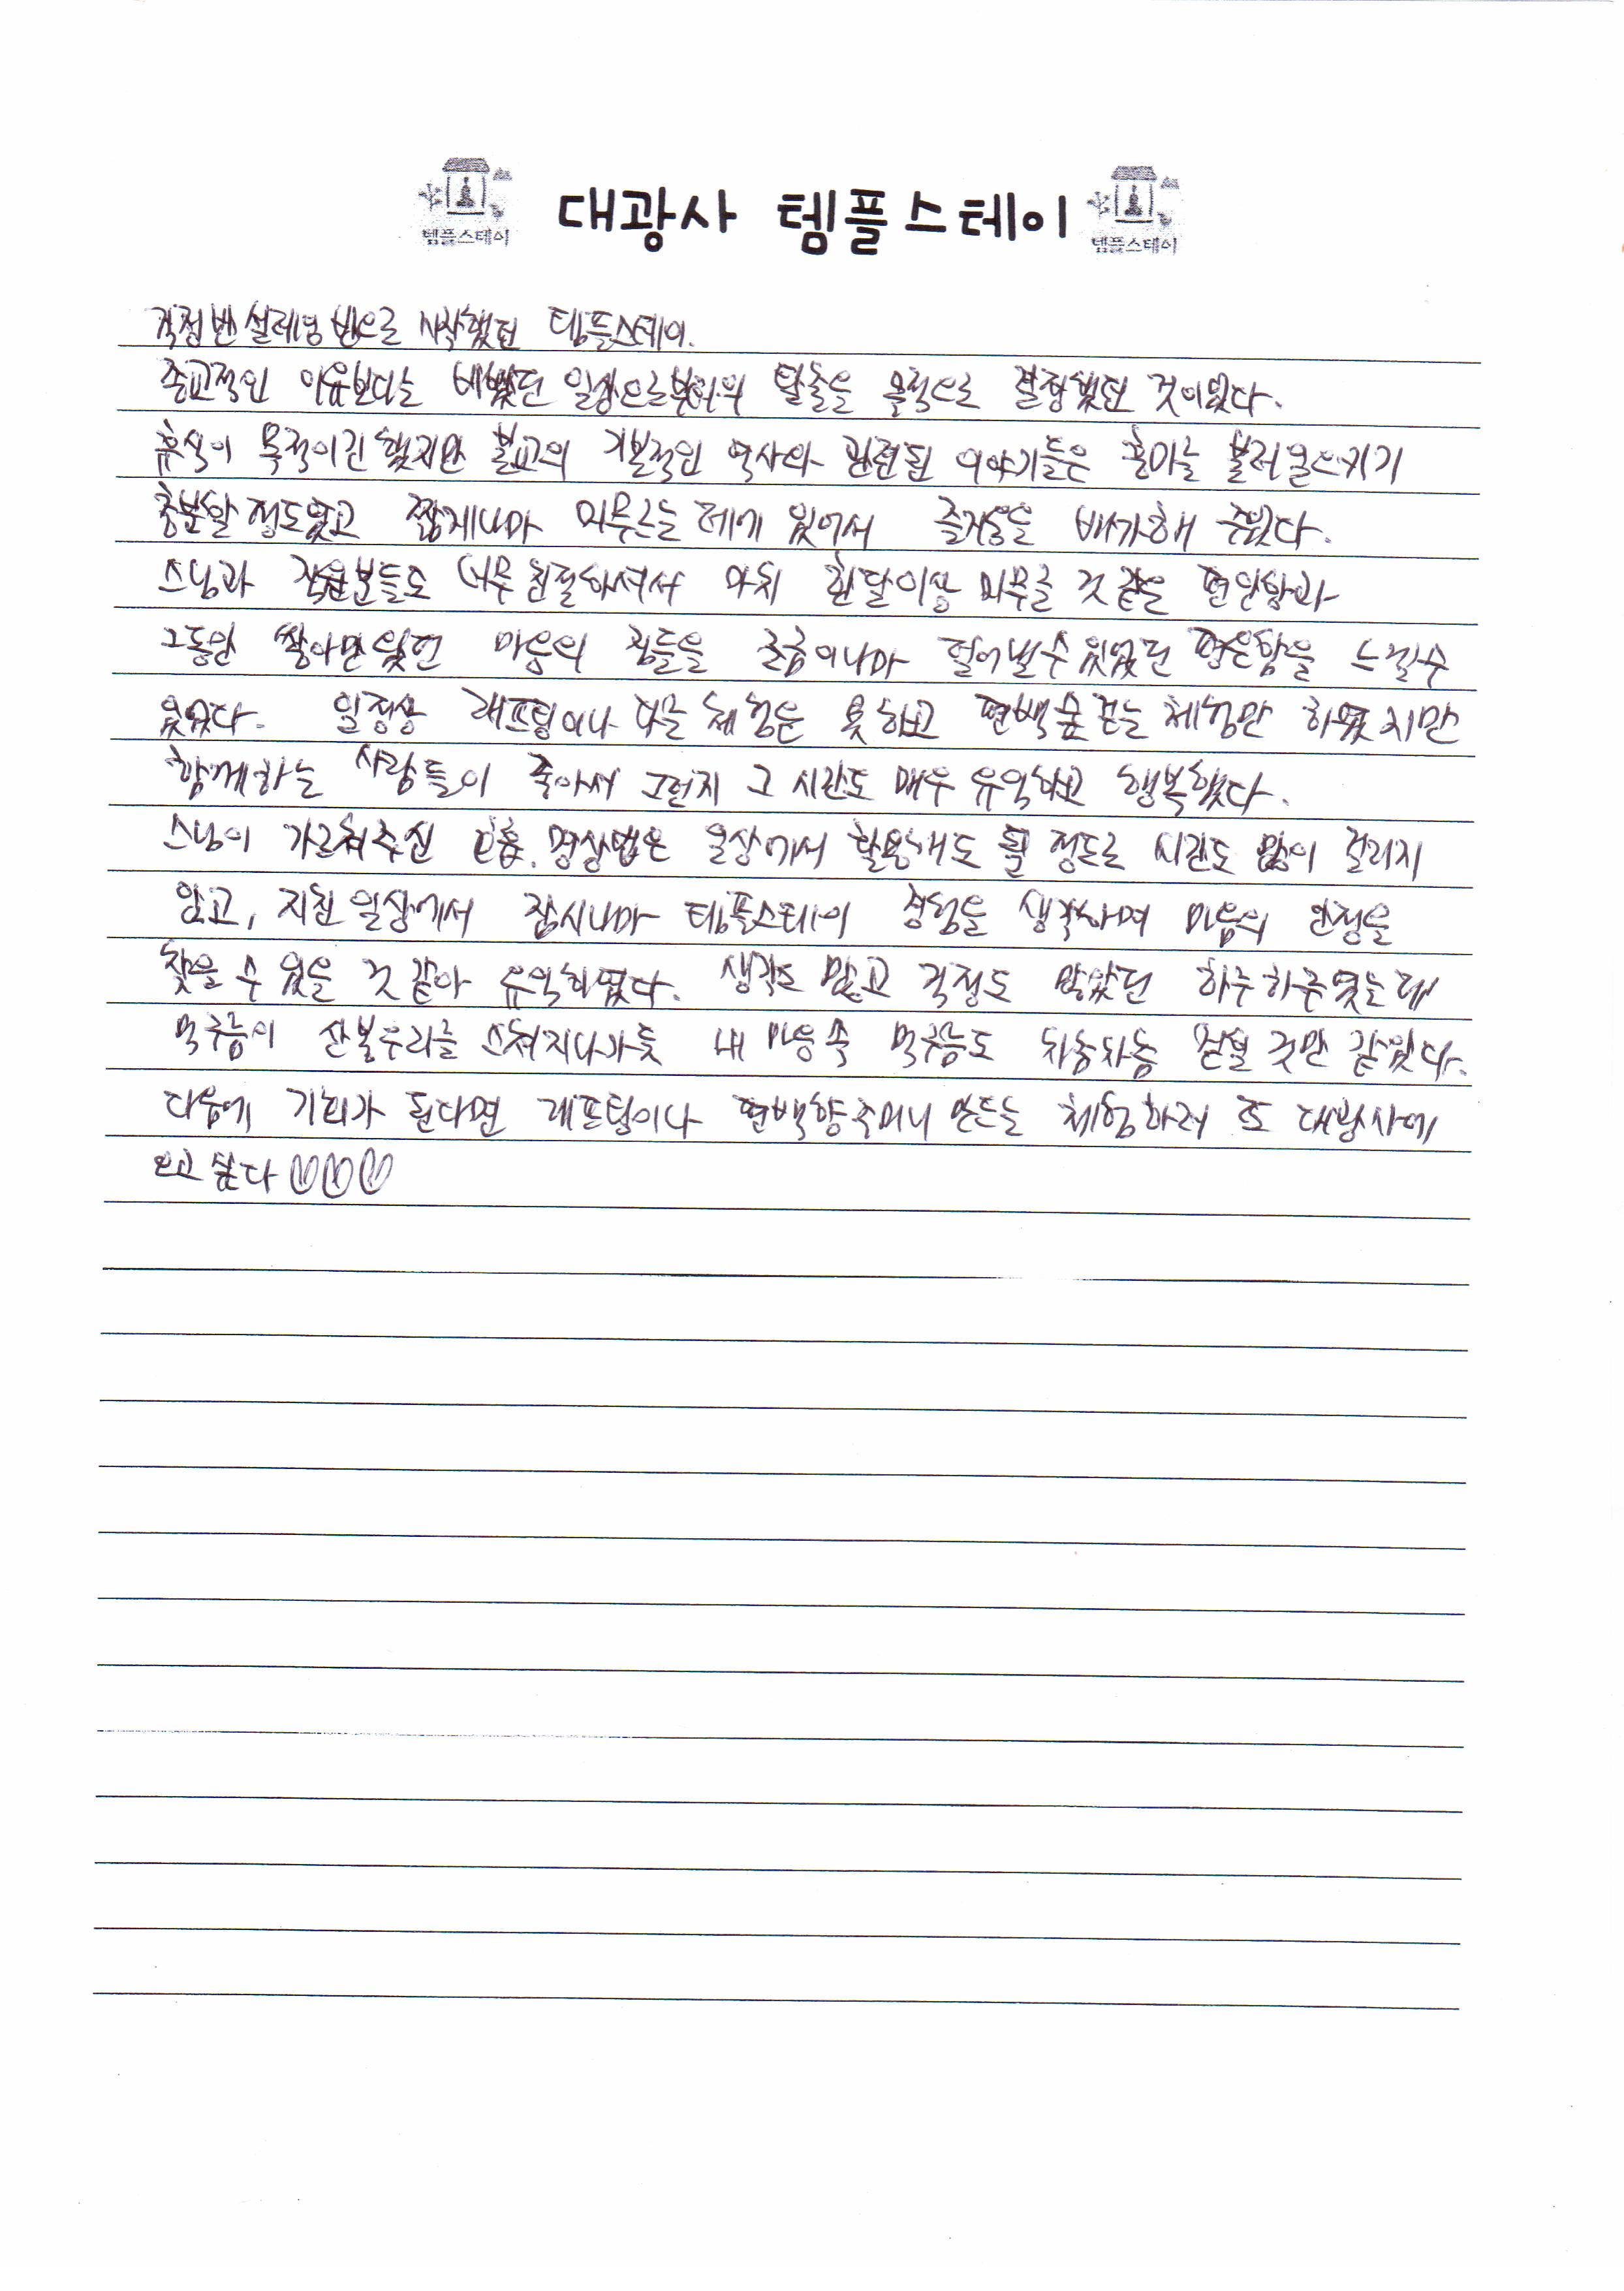 템플스테이 대광사 템플스테이 템플스테이
걱정반 설레임반으로 시작했던 템플스테이.
종교적인 이유보다는 바빴던 일상으로부터의 탈출을 목적으로 결정했던 것이었다.
휴식이 목적이긴 했지만 불교의 기본적인 역사와 관련된 이야기들은 흥미를 불러일으키기
충분할 정도였고 짧게나마 머무르는 데에 있어서 즐거움을 배가해 주었다.
스님과 직원분들도 너무 친절하셔서 마치 한달이상 머무를 것 같은 편안함과
그동안 쌓아만 왔던 마음의 짐들을 조금이나마 덜어낼 수 있었던 평온함을 느낄수
있었다. 일정상 래프팅이나 다른 체험은 못하고 편백숲 걷는 체험만 하였지만
함께하는 사람들이 좋아서 그런지 그 시간도 매우 유익하고 행복했다.
스님이 가르쳐주신 호흡, 명상법은 일상에서 활용해도 될 정도로 시간도 많이 걸리지
않고, 지친 일상에서 잠시나마 템플스테이 경험을 생각하며 마음의 안정을
찾을 수 있을 것 같아 유익하였다. 생각도 많고 걱정도 많았던 하루하루였는데
먹구름이 산봉우리를 스쳐지나가듯 내 마음속 먹구름도 차츰차츰 걷힐 것만 같았다.
다음에 기회가 된다면 래프팅이나 편백향주머니 만드는 체험하러 또 대광사에
오고 싶다 ♡♡♡